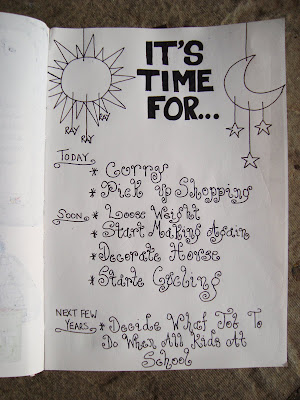 IT'S
TIME
FOR...
RAY
RAY
RAY
TODAY
* Curry
* Pick Up Shopping
SOON * Loose Weight
* Start Making Again
* Decorate House
* Starte Cycling
NEXT FEW
YEARS * Decide What Job To
Do When All Kids At
School